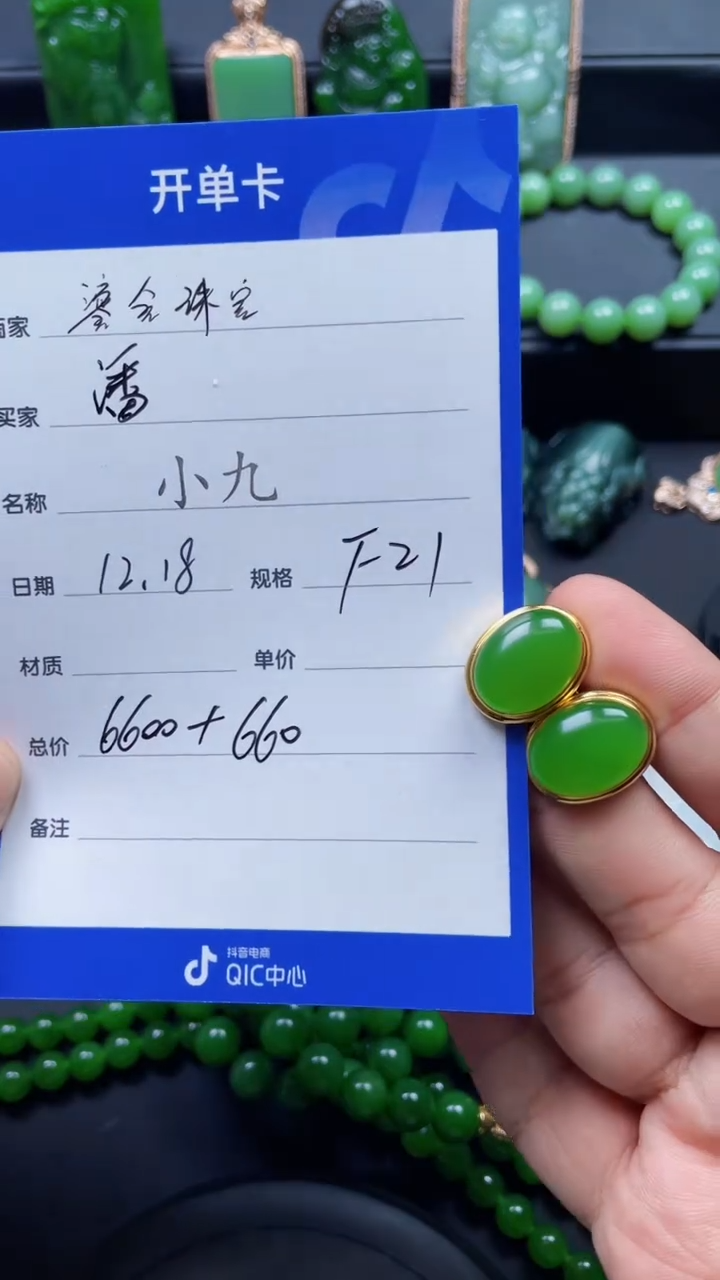 开单卡
商家 鎏金珠宝
买家 潘
名称 小九
日期 12.18 规格 F-21
材质 单价
总价 6600+660
备注
抖音电商
QIC中心